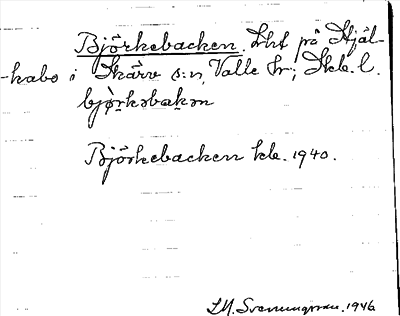 Björkebacken. Lht på Stjäl-
-kabo i Skärv s:n, Valle hr; Skb. l.
bjø̀rkəbakən
Björkebacken kb. 1940.
LM. Svenungsson. 1946